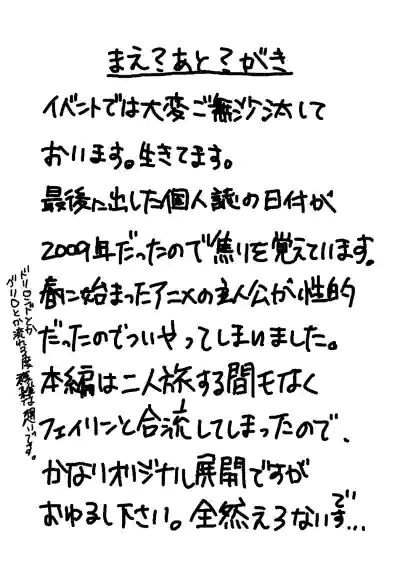 まえ?あと?がき
イベントでは大変ご無沙汰して
おります。生きてます。
最後に出した個人誌の日付が
2009年だったので焦りを覚えています。
春に始まったアニメの主人公が性的
だったのでついやってしまいました。
本編は二人旅する間もなく
フェイリンと合流してしまったので、
かなりオリジナル展開ですが
おゆるし下さい。全然えろないです…
とか流れる度複雑な想いです。